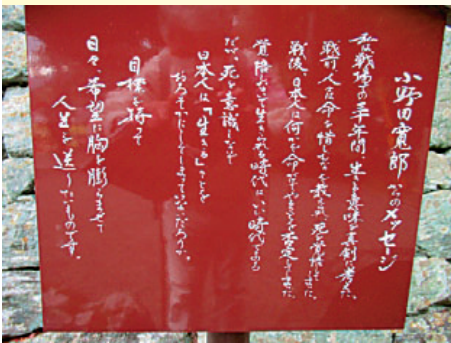 小野田寛郎からのメッセージ
私は戦場での三十年間、生きる意味を真剣に考えた。
戦前、人は命を惜しむなと教えられ、死を覚悟した
戦後、日本人は何かを命がけでやることを否定してしまった。
覚悟をしないで生きられる時代はいい時代である
だが、死を意識しないと
日本人は「生きる」ことを
おろそかにしてしまっていないだろうか。
目標を持って
日々、希望に胸を膨らませて
人生を送りたいものです。